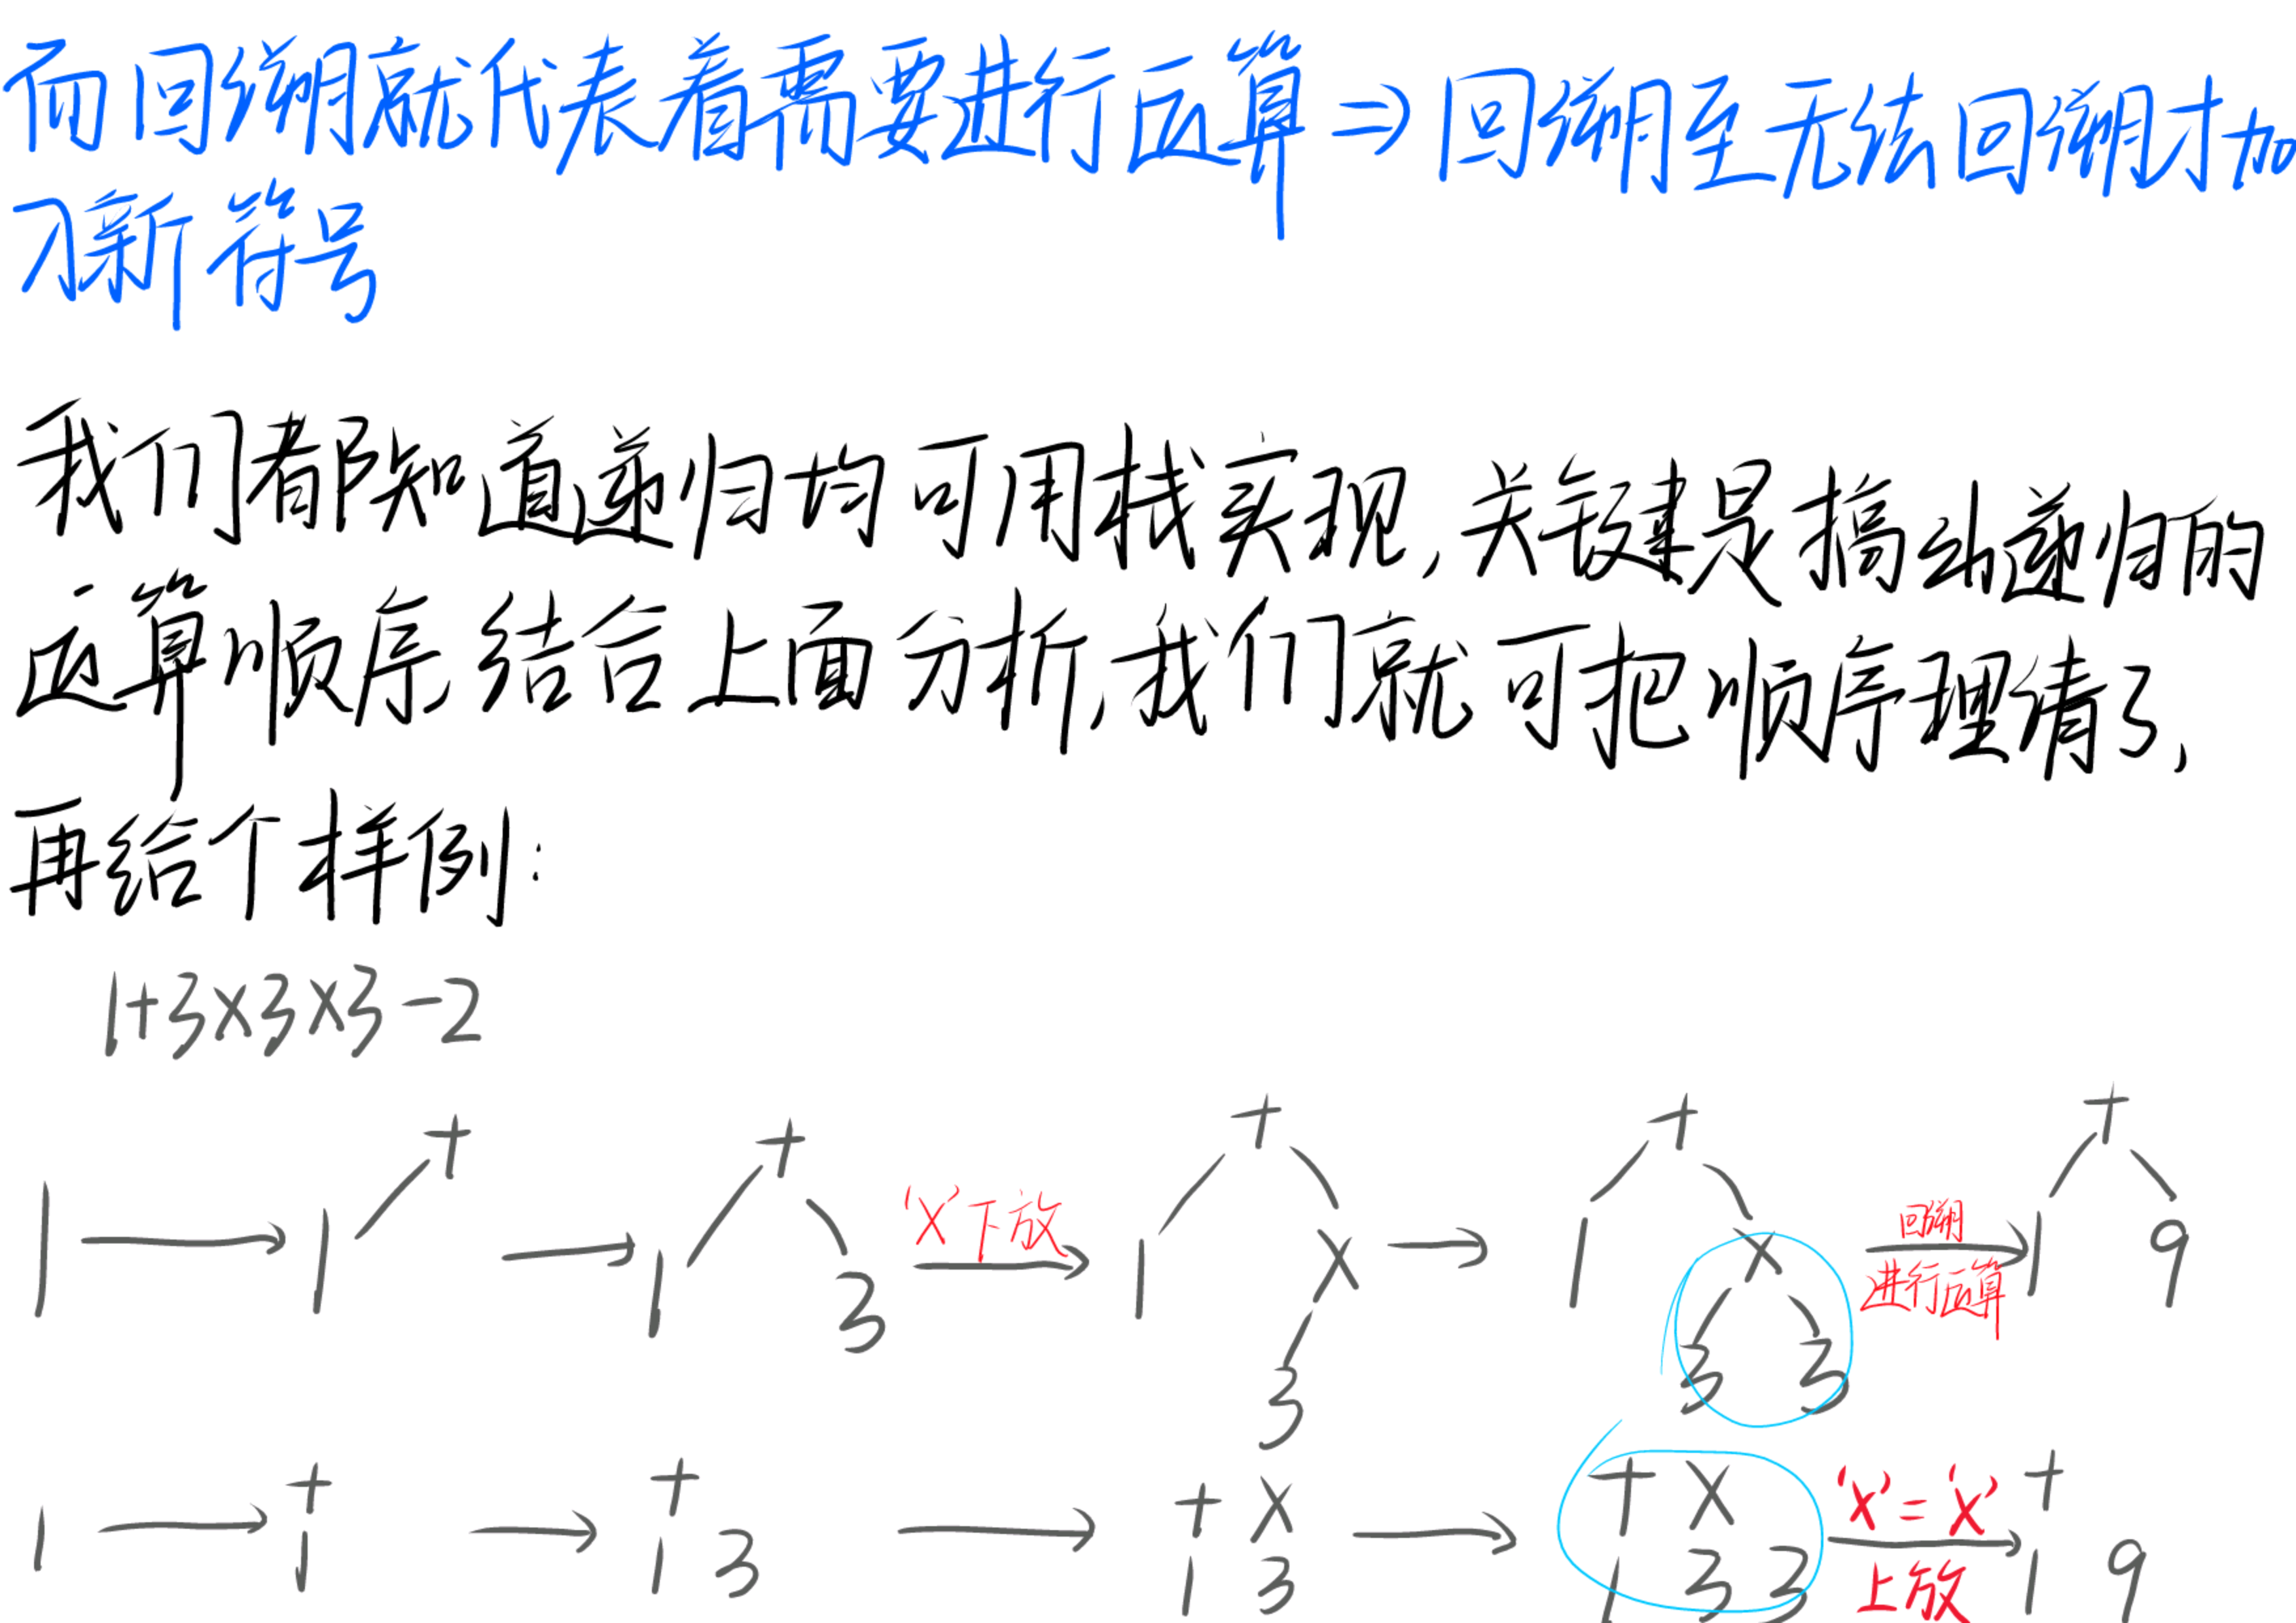 而回溯就代表着需要进行运算⇒回溯至无法回溯才加
入新符号
我们都知道递归均可用栈实现,关键是搞出递归的
运算顺序,结合上面分析,我们就可把顺序理清了,
再给个样例:
1+3×3×3-2
+ + + + +
'×'下放 回溯
1 1 1 3 1 × 1 × 进行运算 1 9
3 3 3
+ + + × + × '×'='×' +
1 1 1 3 1 3 1 3 3 上放 1 9